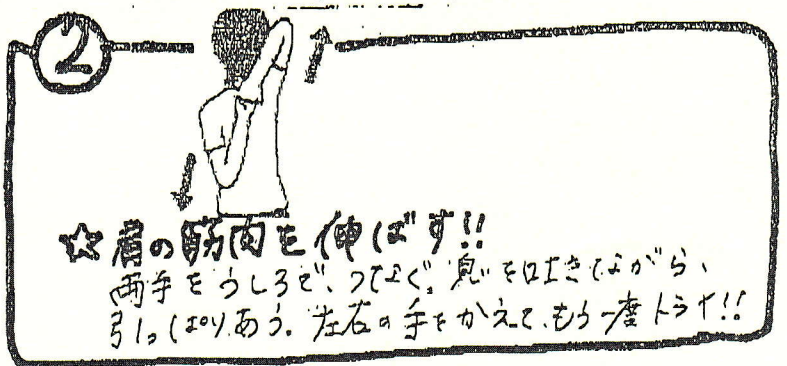 2
☆肩の筋肉を伸ばす!!
両手をうしろで、つなぐ。息を吐きながら、
引っぱりあう。左右の手をかえて、もう一度トライ!!